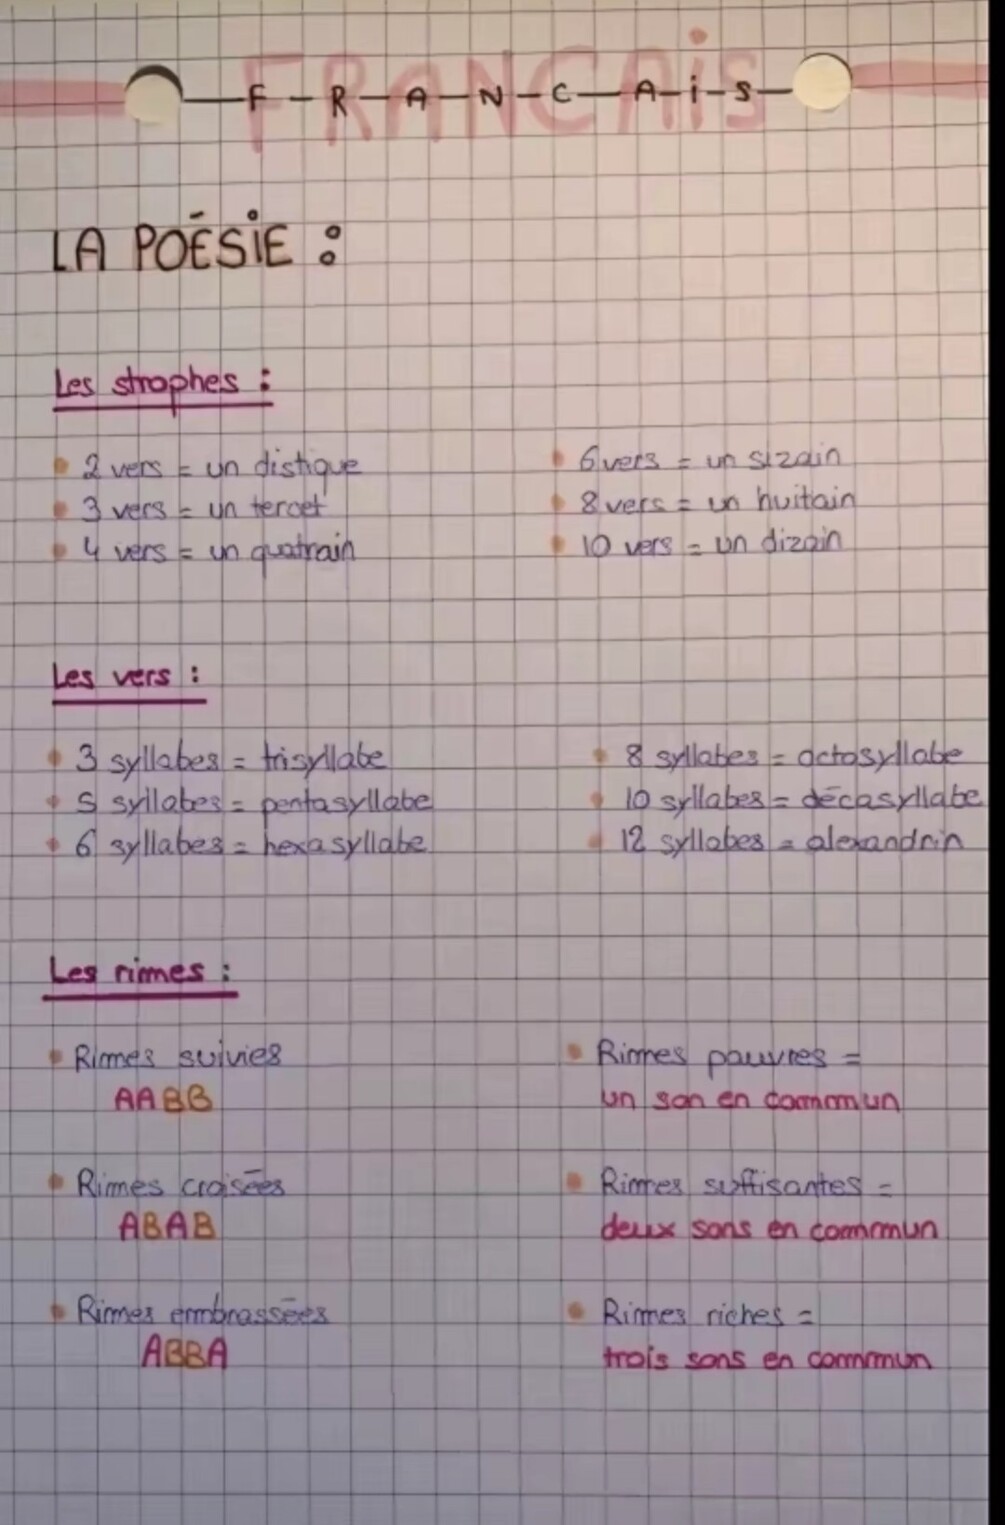 FRANCAiS
F-R-A-N-C-A-i-S
LA POÉSiE :
Les strophes :
2 vers = un distique
3 vers = un tercet
4 vers = un quatrain
6 vers = un sizain
8 vers = un huitain
10 vers = un dizain
Les vers :
3 syllabes = trisyllabe
5 syllabes = pentasyllabe
6 syllabes = hexasyllabe
8 syllabes = octosyllabe
10 syllabes = décasyllabe
12 syllabes = alexandrin
Les rimes :
Rimes suivies
AABB
Rimes croisées
ABAB
Rimes embrassées
ABBA
Rimes pauvres =
un son en commun
Rimes suffisantes =
deux sons en commun
Rimes riches =
trois sons en commun